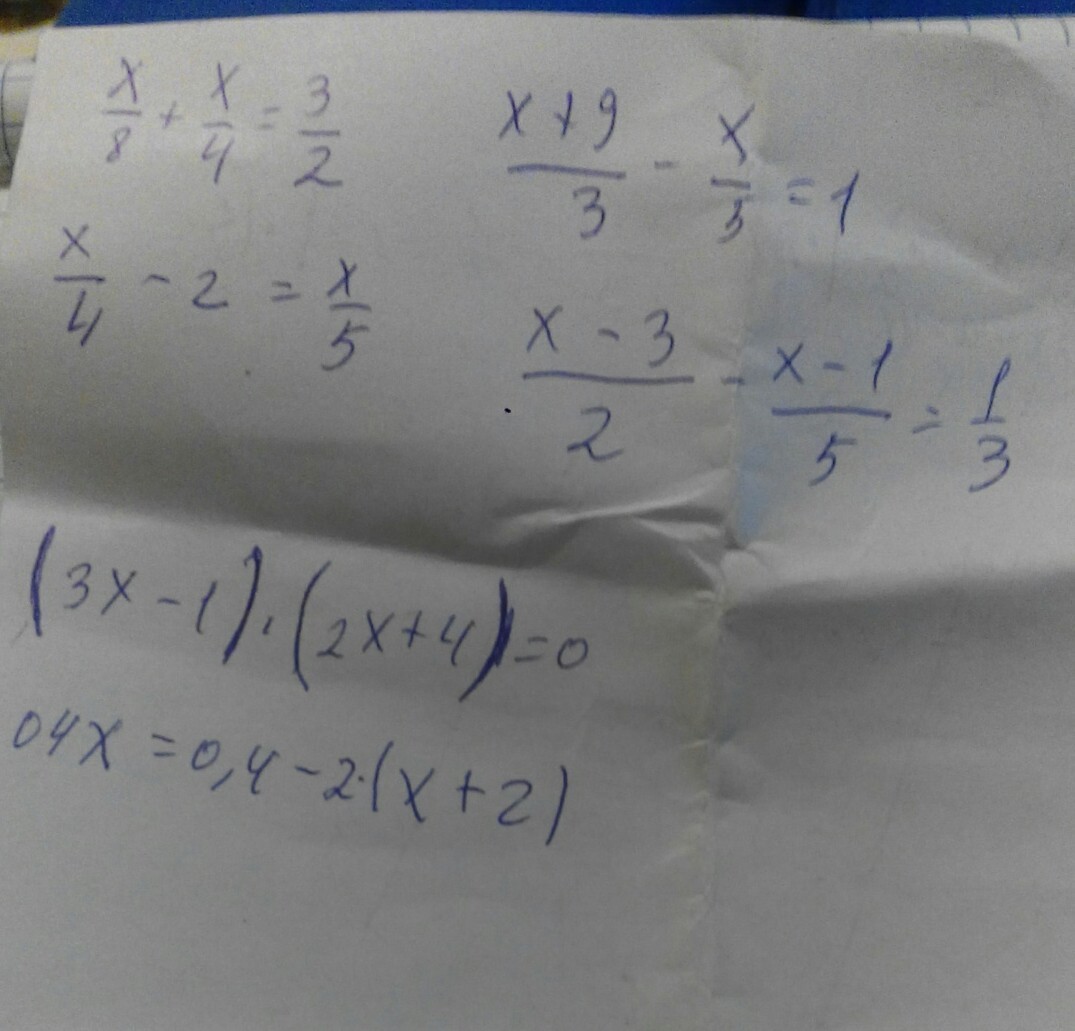 x/8 + x/4 = 3/2
x/4 - 2 = x/5
(x+9)/3 - x/5 = 1
(x-3)/2 - (x-1)/5 = 1/3
(3x-1)·(2x+4)=0
04x = 0,4-2·(x+2)